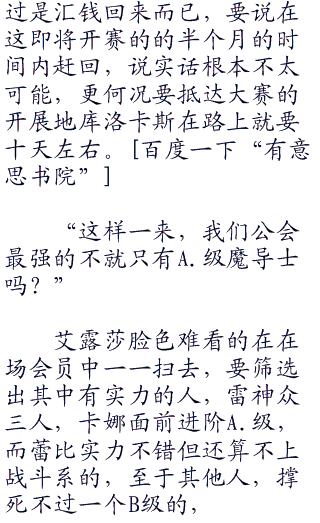 过是汇钱回来而已，要说在
这即将开赛的的半个月的时
间内赶回，说实话根本不太
可能，更何况要抵达大赛的
开展地库洛卡斯在路上就要
十天左右。[百度一下“有意
思书院”]
“这样一来，我们公会
最强的不就只有A.级魔导士
吗？”
艾露莎脸色难看的在在
场会员中一一扫去，要筛选
出其中有实力的人，雷神众
三人，卡娜面前进阶A.级，
而蕾比实力不错但还算不上
战斗系的，至于其他人，撑
死不过一个B级的，